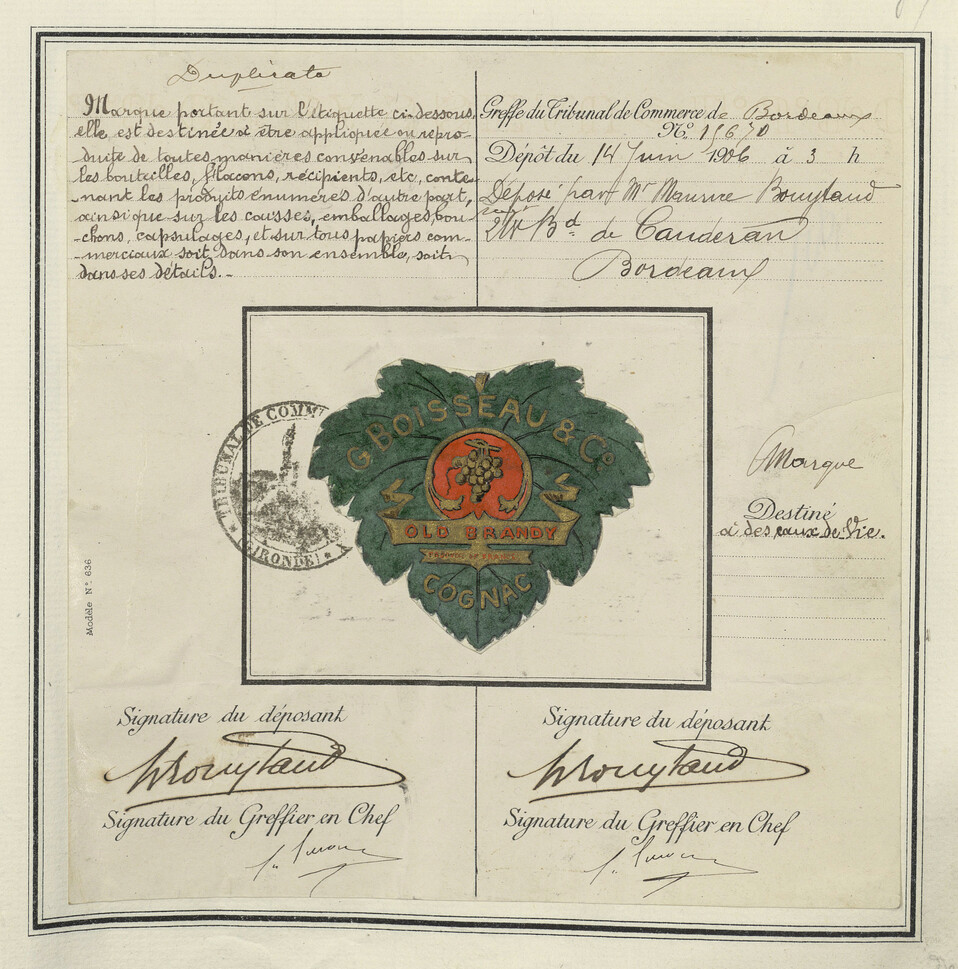 Duplicata
Marque portant sur l'étiquette ci-dessous,
elle est destinée à être appliquée ou repro-
duite de toutes manières convenables sur
les bouteilles, flacons, récipients, etc, conte-
nant les produits énumérés d'autre part,
ainsi que sur les caisses, emballages, bou-
chons, capsulages, et sur tous papiers com-
-merciaux soit dans son ensemble, soit
dans ses détails.-
Greffe du Tribunal de Commerce de Bordeaux
No. 11670
Dépôt du 14 Juin 1906 à 3 h
Déposé par Mr Maurice Bouytaud
Bd de Cauderan
Bordeaux
TRIBUNAL DE COMM
(GIRONDE)
G. BOISSEAU & Co
OLD BRANDY
PRODUCE OF FRANCE
COGNAC
Marque
Destiné
à des eaux-de-Vie.
Modèle No. 636
Signature du déposant
Bouytaud
Signature du Greffier en Chef
Signature du déposant
Bouytaud
Signature du Greffier en Chef